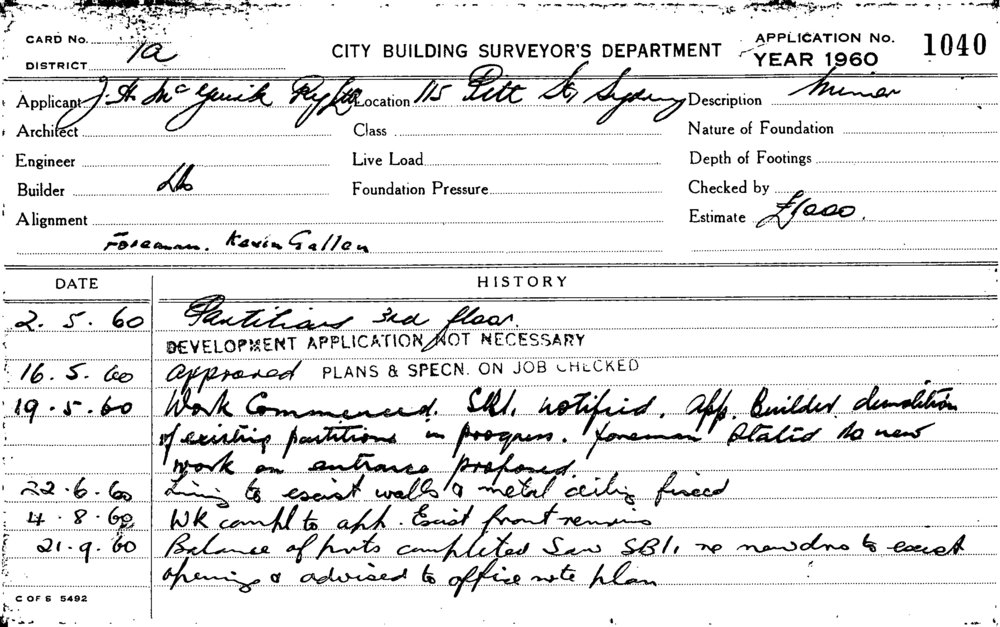 CARD No.
DISTRICT 1a
CITY BUILDING SURVEYOR'S DEPARTMENT
APPLICATION No. 1040
YEAR 1960
Applicant J. A. McGuirk Pty Ltd Location 115 Pitt St, Sydney Description Minor
Architect Class Nature of Foundation
Engineer Live Load Depth of Footings
Builder Foundation Pressure Checked by
Alignment Estimate £1000.
Foreman. Kevin Gallen
DATE HISTORY
2. 5. 60 Partitions 3rd floor.
DEVELOPMENT APPLICATION NOT NECESSARY
16. 5. 60 Approved PLANS & SPECN. ON JOB CHECKED
19. 5. 60 Work Commenced. SBI. notified. App. Builder demolition
of existing partitions in progress. foreman stated no new
work on entrance proposed.
22. 6. 60 Lining to exist walls & metal ceiling fixed
4. 8. 60 WK compl to app. Exist front remains
21. 9. 60 Balance of parts completed Saw SBI, re new drs to exist
opening & advised to office note plan
C OF S 5492